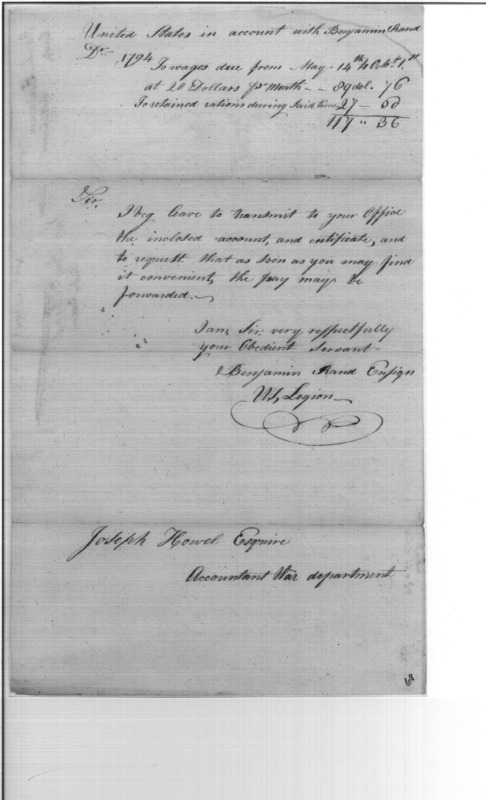 United States in account with Benjamin Rand
Dr. 1794
To wages due from May 14th to Octr. 1st
at 20 Dollars pr Month -- 89 dol. 76
To retained rations during said time 27 - 60
117 " 36
Sir.
I beg leave to transmit to your Office
the inclosed account, and certificate, and
to request that as soon as you may find
it convenient, the pay may be
forwarded.
I am, Sir, very respectfully
your Obedient Servant
Benjamin Rand Ensign
US, Legion
Joseph Howel Esquire
Accountant War department